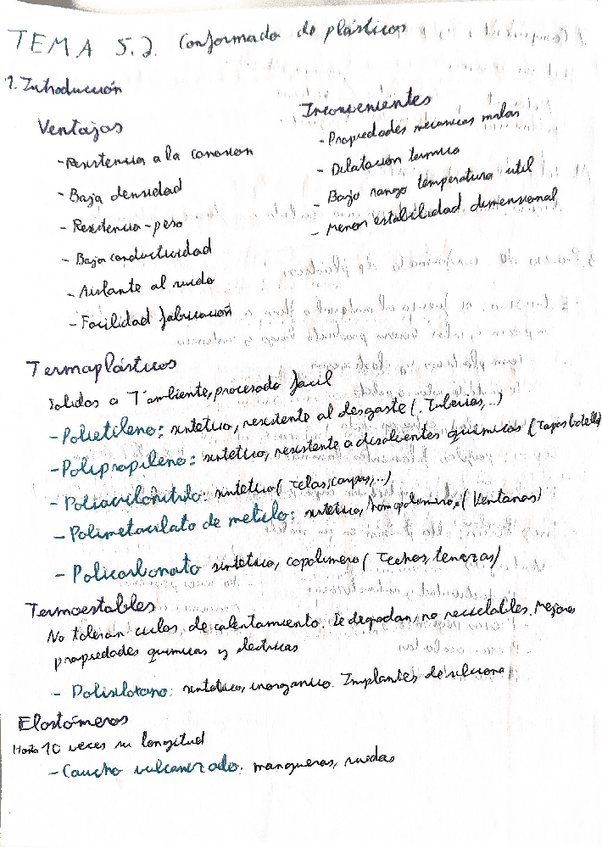 TEMA 5.2. Conformado de plásticos
1. Introducción
Ventajas
- Resistencia a la corrosion
- Baja densidad
- Resistencia-peso
- Baja conductividad
- Aislante al ruido
- Facilidad fabricación
Inconvenientes
- Propiedades mecanicas malas
- Dilatación termica
- Bajo rango temperatura util
- Menor estabilidad dimensional
Termaplásticos
Solidos a T ambiente, procesado facil
- Polietileno: sintetico, resistente al desgaste (Tuberias,..)
- Polipropileno: sintetico, resistente a disolventes quimicos (Tapos botella
- Poliacrilonitrilo: sintetico (Telas, carpas,..)
- Polimetacilato de metilo: sintetico, homopolimero, (Ventanas)
- Policarbonato sintetico, copolimero (Techos, terrazas)
Termoestables
No toleran ciclos de calentamiento. Se degradan, no reciclables. Mejores
propiedades quimicas y electricas
- Polisiloxano: sintetico, inorganico. Implantes de silicona
Elastómeros
Hasta 10 veces su longitud
- Caucho vulcanizado: mangueras, ruedas